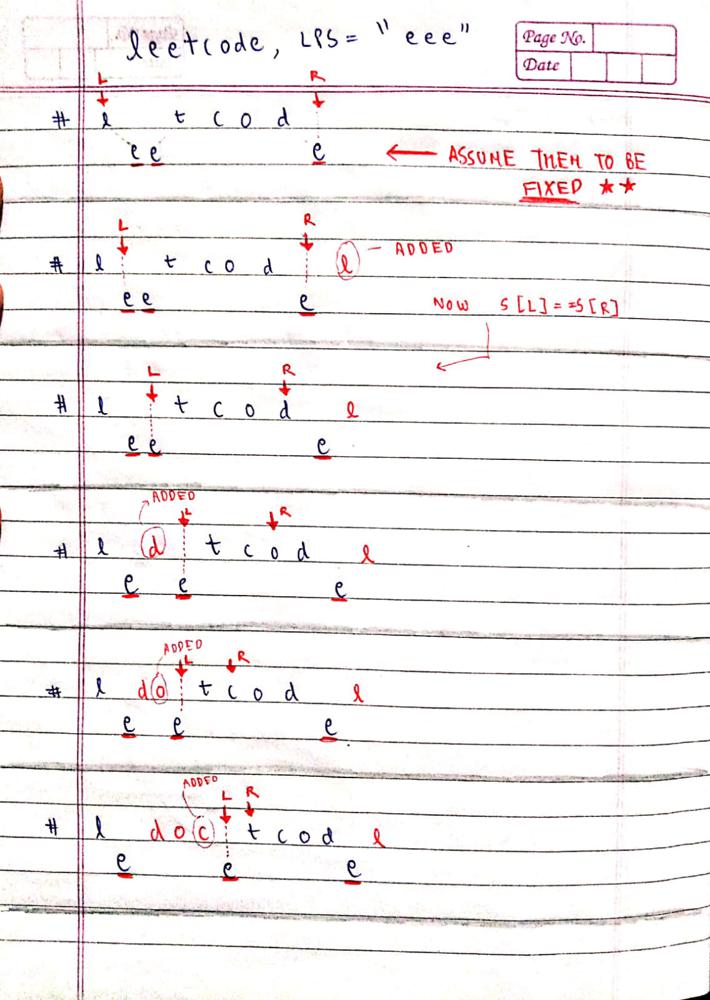 leetcode, LPS = "eee"
Page No.
Date
L R
# l t c o d
e e e ← ASSUME THEM TO BE
FIXED ★★
L R
# l t c o d l - ADDED
e e e
NOW S[L]==S[R]
L R
# l t c o d l
e e e
ADDED
L R
# l d t c o d l
e e e
ADDED
L R
# l d o t c o d l
e e e
ADDED
L R
# l d o c t c o d l
e e e